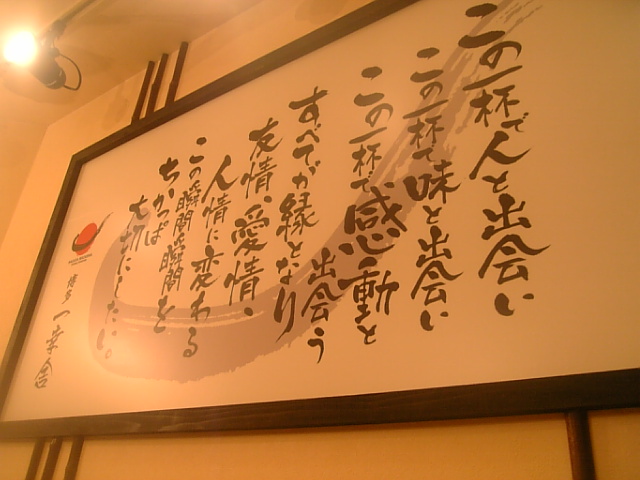 この一杯で人と出会い
この一杯で味と出会い
この一杯で感動と
出会う
すべてが縁となり
友情、愛情、
人情に変わる
この瞬間瞬間を
ちかっぱ
大切にしたい。
博多 一幸舎